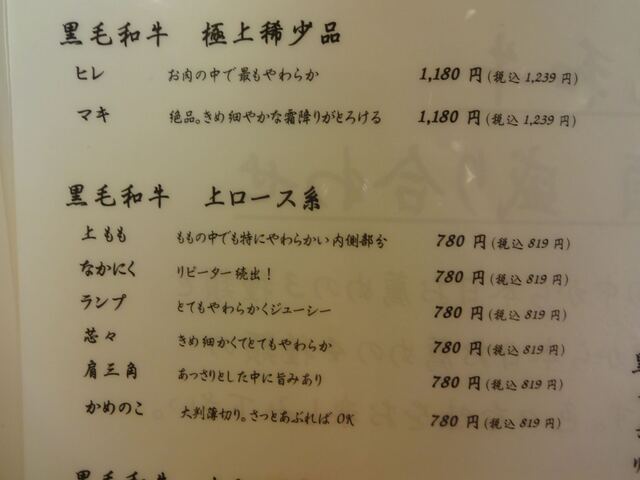 黒毛和牛 極上稀少品
ヒレ お肉の中で最もやわらか 1,180 円 (税込 1,239 円)
マキ 絶品。きめ細やかな霜降りがとろける 1,180 円 (税込 1,239 円)
黒毛和牛 上ロース系
上もも ももの中でも特にやわらかい内側部分 780 円 (税込 819 円)
なかにく リピーター続出! 780 円 (税込 819 円)
ランプ とてもやわらかくジューシー 780 円 (税込 819 円)
芯々 きめ細かくてとてもやわらか 780 円 (税込 819 円)
肩三角 あっさりとした中に旨みあり 780 円 (税込 819 円)
かめのこ 大判薄切り。さっとあぶれば OK 780 円 (税込 819 円)
黒毛和牛